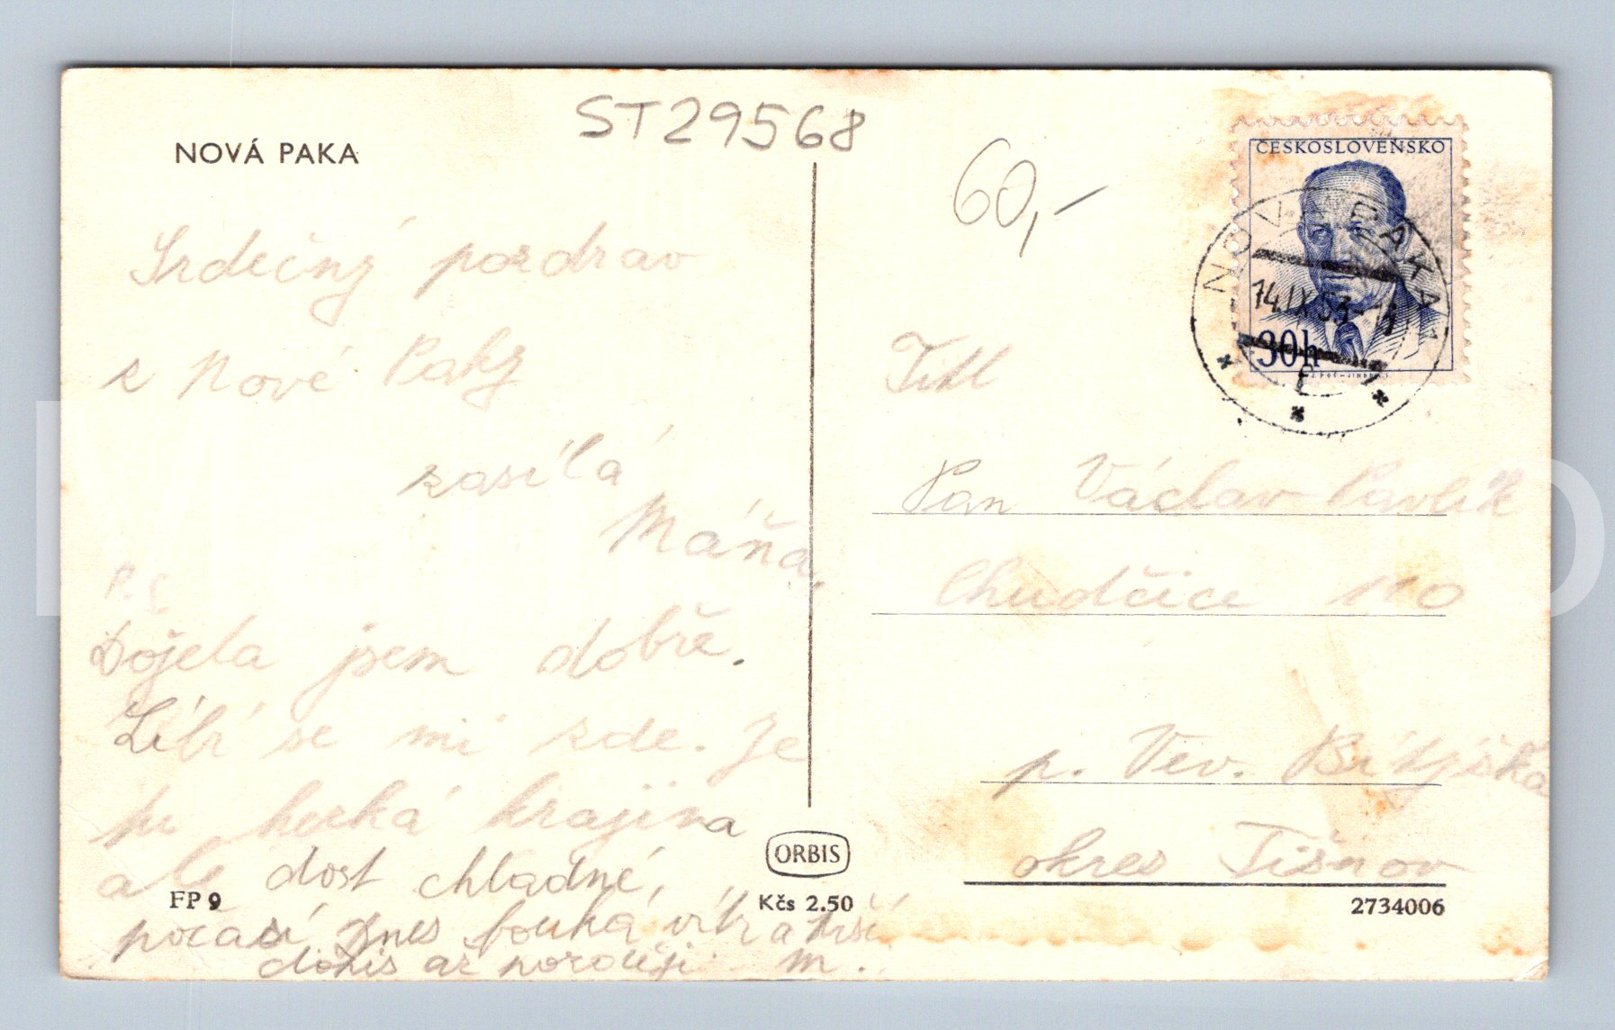 NOVÁ PAKA
ST29568
60,-
ČESKOSLOVENSKO
30h
NOVÁ PAKA 1
14.IX.53
Srdečný pozdrav
z Nové Paky
zasílá
Máňa.
P.S
Dojela jsem dobře.
Líbí se mi zde. Je
tu hezká krajina
ale dost chladné,
počasí. Dnes fouká vítr a prší
dopis až později. M.
Titl
Pan Václav Pavlík
Chudčice 110
p. Vev. Bítýška
okres Tišnov
FP 9
ORBIS
Kčs 2.50
2734006